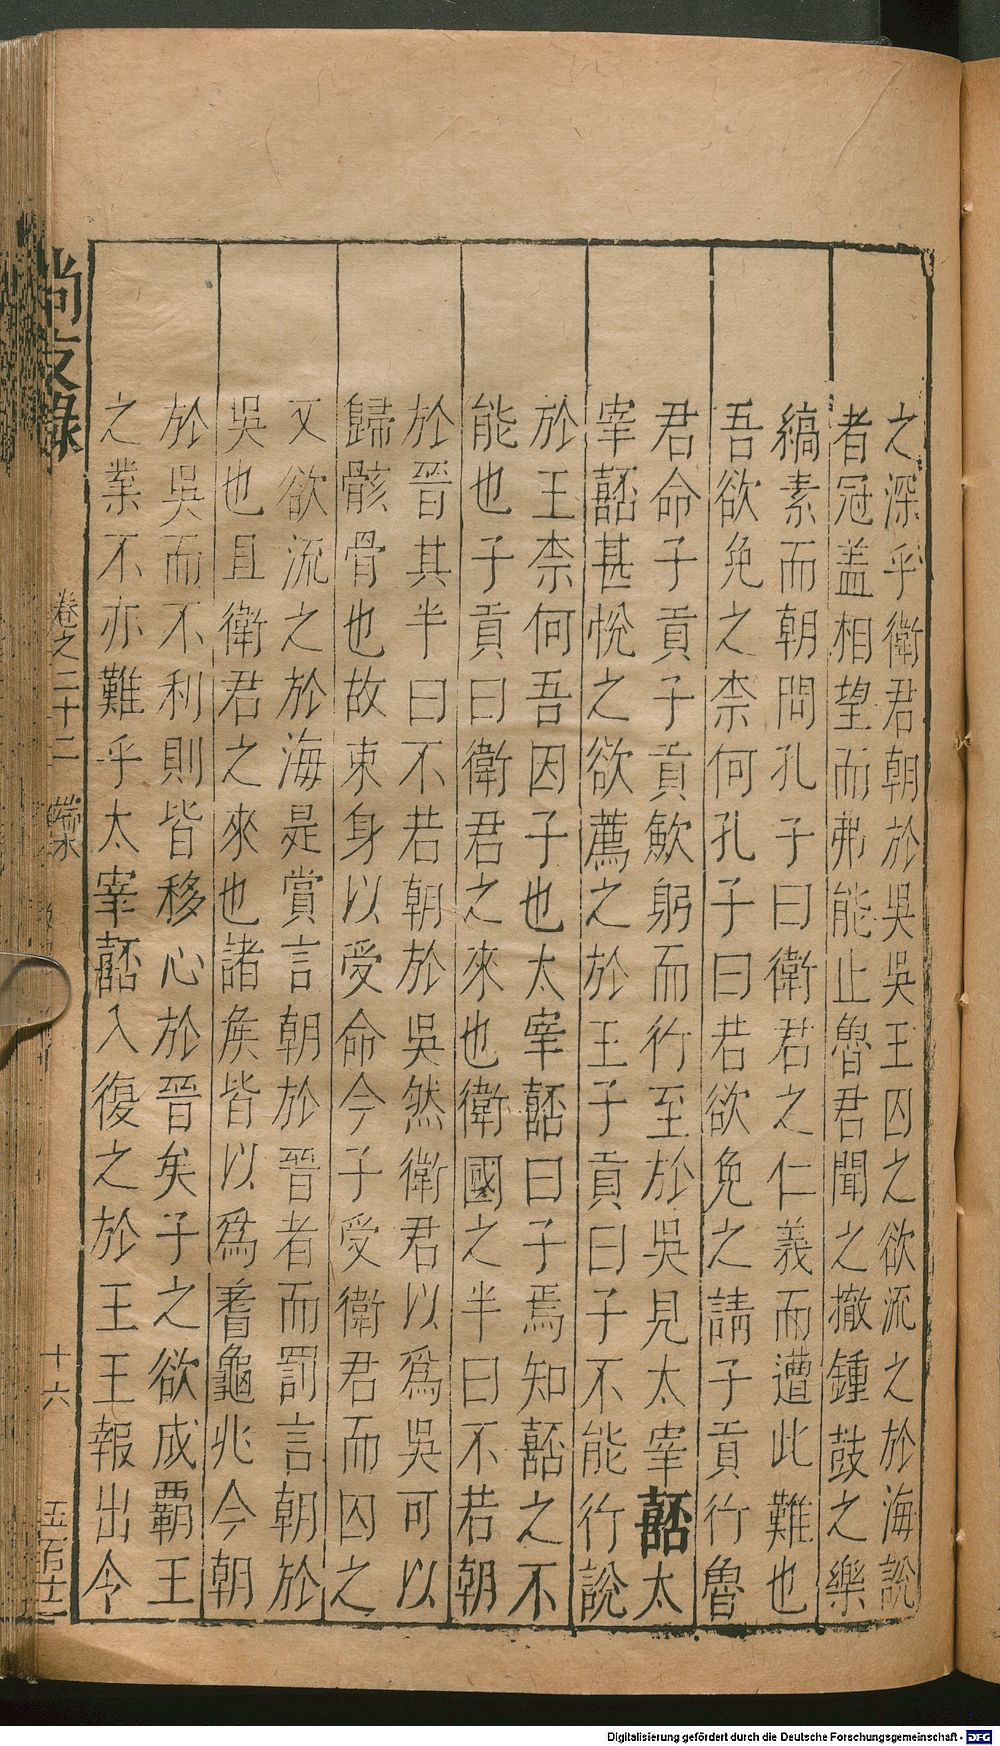 之深乎衛君朝於吳吳王囚之欲流之於海說
者冠盖相望而弗能止魯君聞之撤鍾鼓之樂
縞素而朝問孔子曰衛君之仁義而遭此難也
吾欲免之柰何孔子曰若欲免之請子貢行魯
君命子貢子貢歛躬而行至於吳見太宰嚭太
宰嚭甚悅之欲薦之於王子貢曰子不能行說
於王柰何吾因子也太宰嚭曰子焉知嚭之不
能也子貢曰衛君之來也衛國之半曰不若朝
於晉其半曰不若朝於吳然衛君以爲吳可以
歸骸骨也故束身以受命今子受衛君而囚之
又欲流之於海是賞言朝於晉者而罰言朝於
吳也且衛君之來也諸矦皆以爲蓍龜兆今朝
於吳而不利則皆移心於晉矣子之欲成覇王
之業不亦難乎太宰嚭入復之於王王報出令
尚友錄
卷之二十二
端木
十六
Digitalisierung gefördert durch die Deutsche Forschungsgemeinschaft - DFG